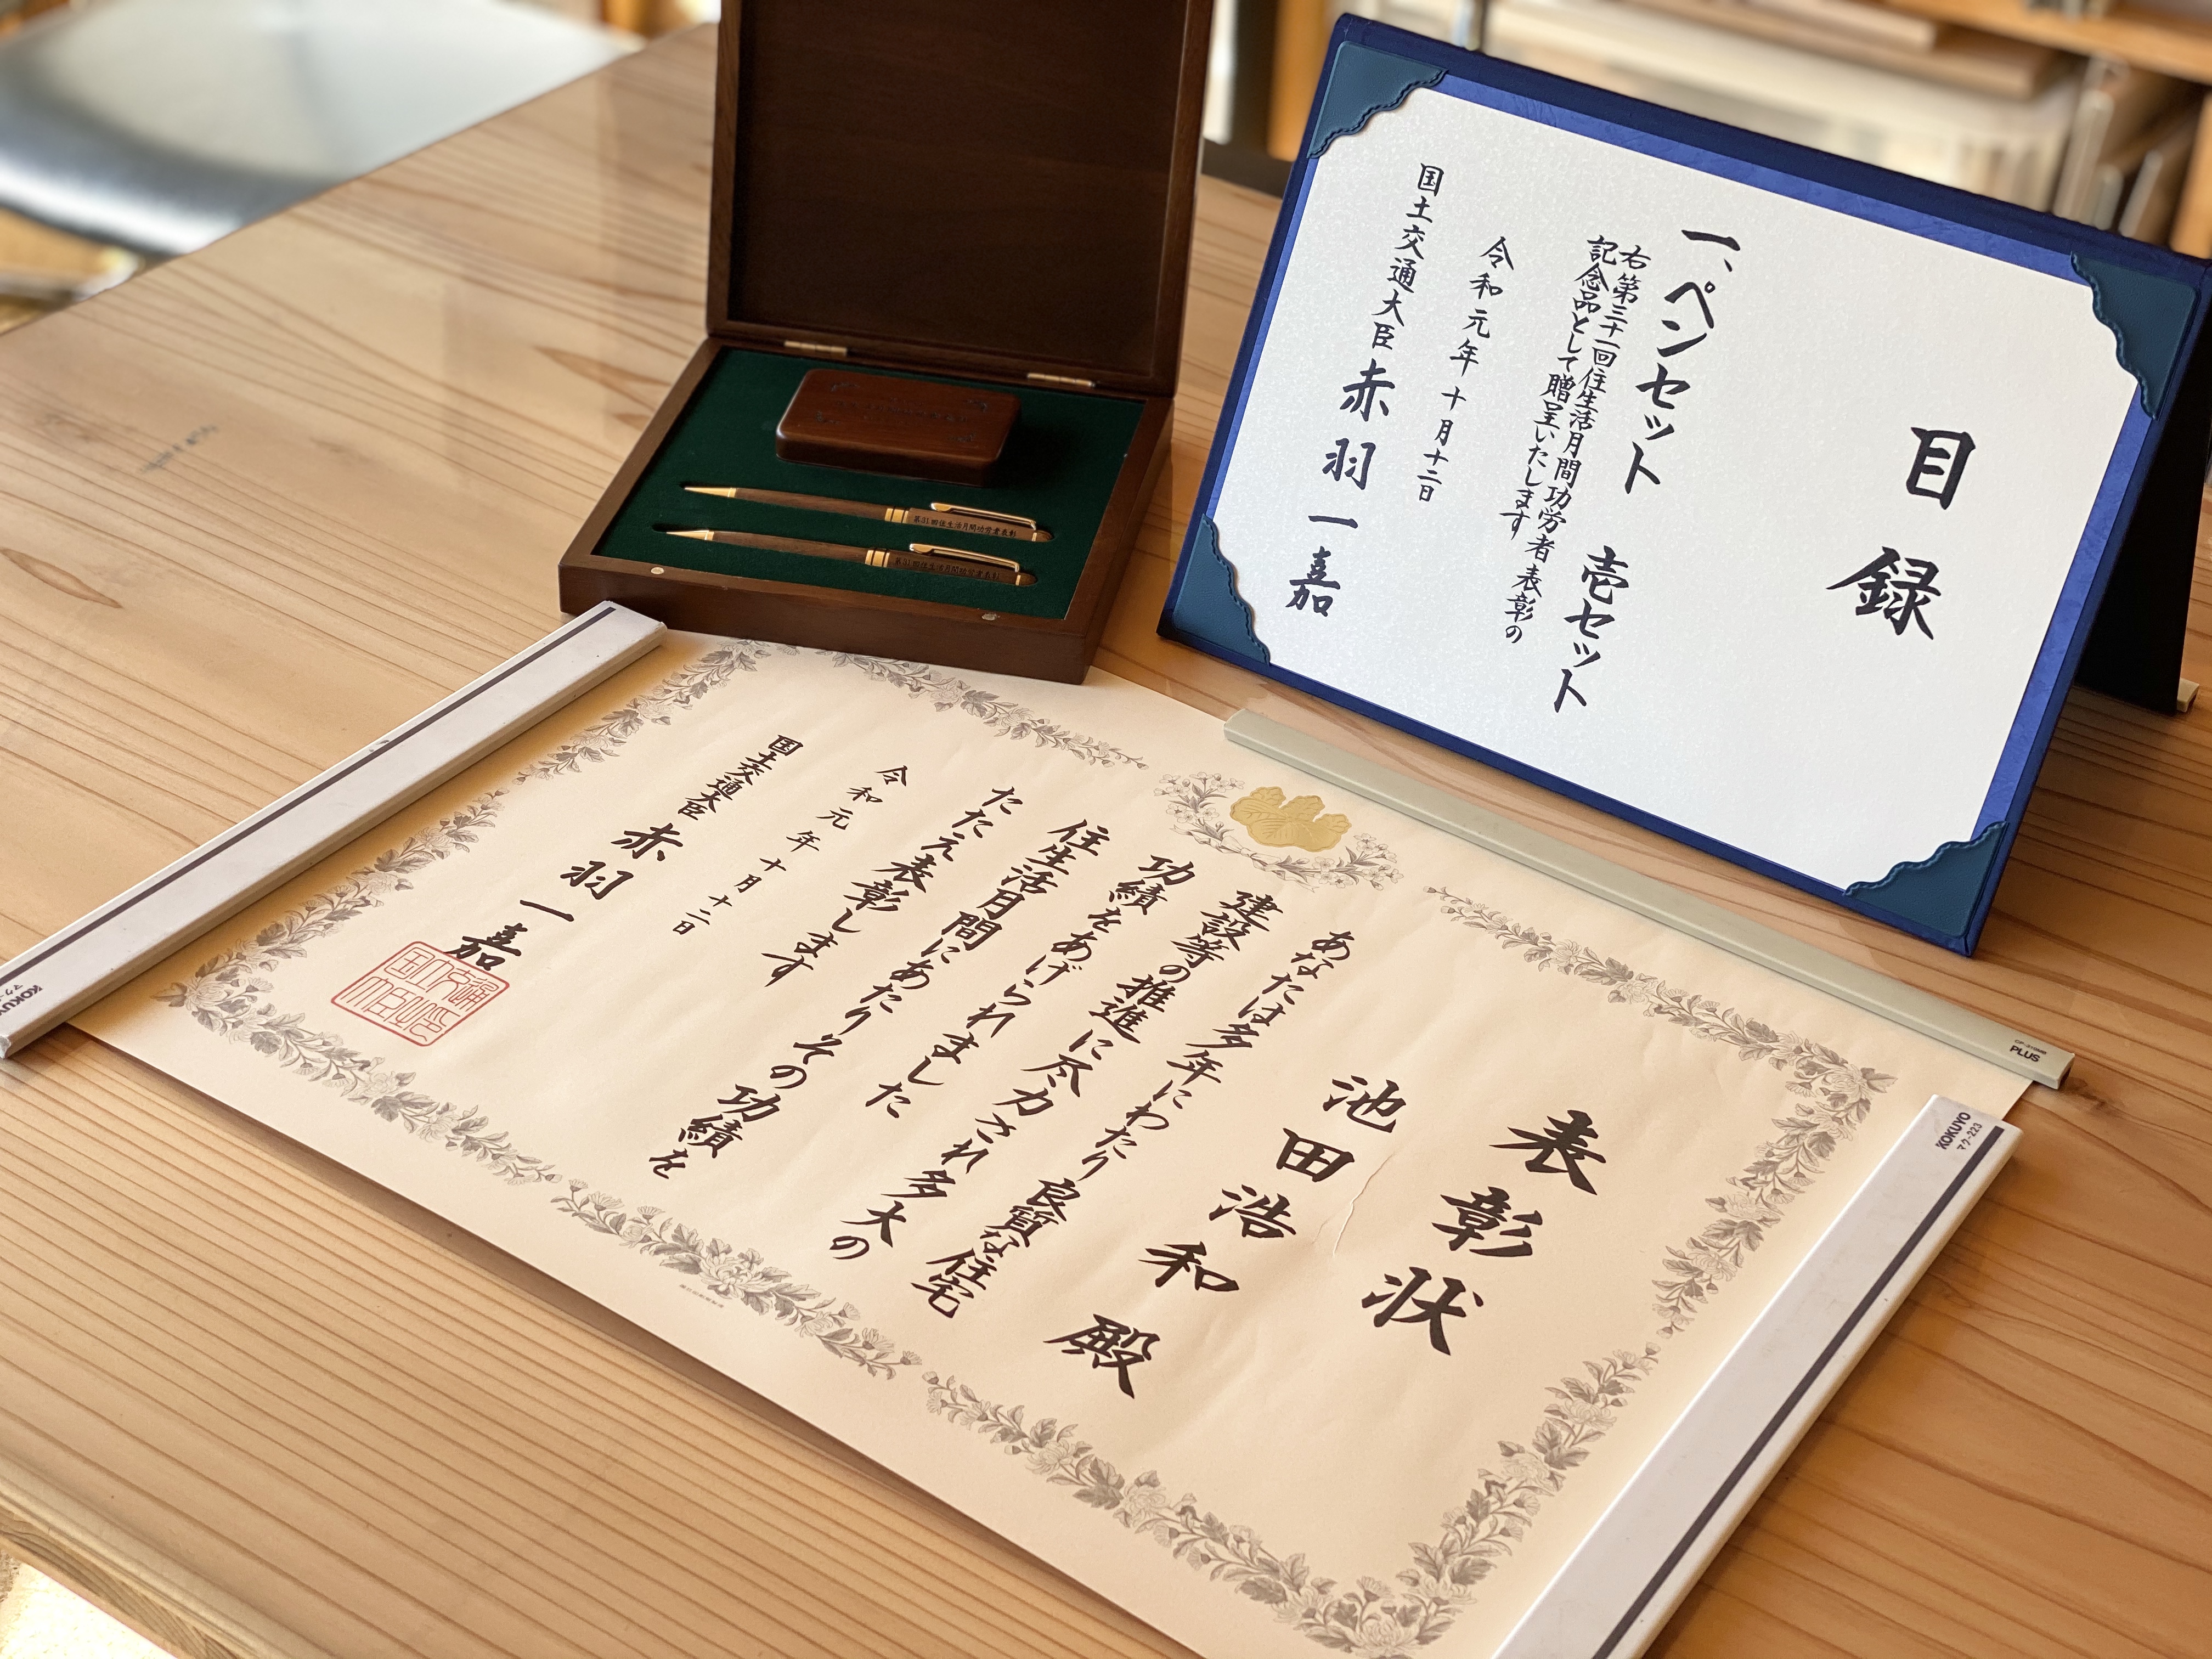 目録
一、ペンセット 壱セット
右第三十一回住生活月間功労者表彰の
記念品として贈呈いたします
令和元年十月十二日
国土交通大臣 赤羽一嘉
第31回住生活月間功労者表彰
第31回住生活月間功労者表彰
表彰状
池田浩和殿
あなたは多年にわたり良質な住宅
建設等の推進に尽力され多大の
功績をあげられました
住生活月間にあたりその功績を
たたえ表彰します
令和元年十月十二日
国土交通大臣 赤羽一嘉
KOKUYO
PLUS
KOKUYO
マク-223